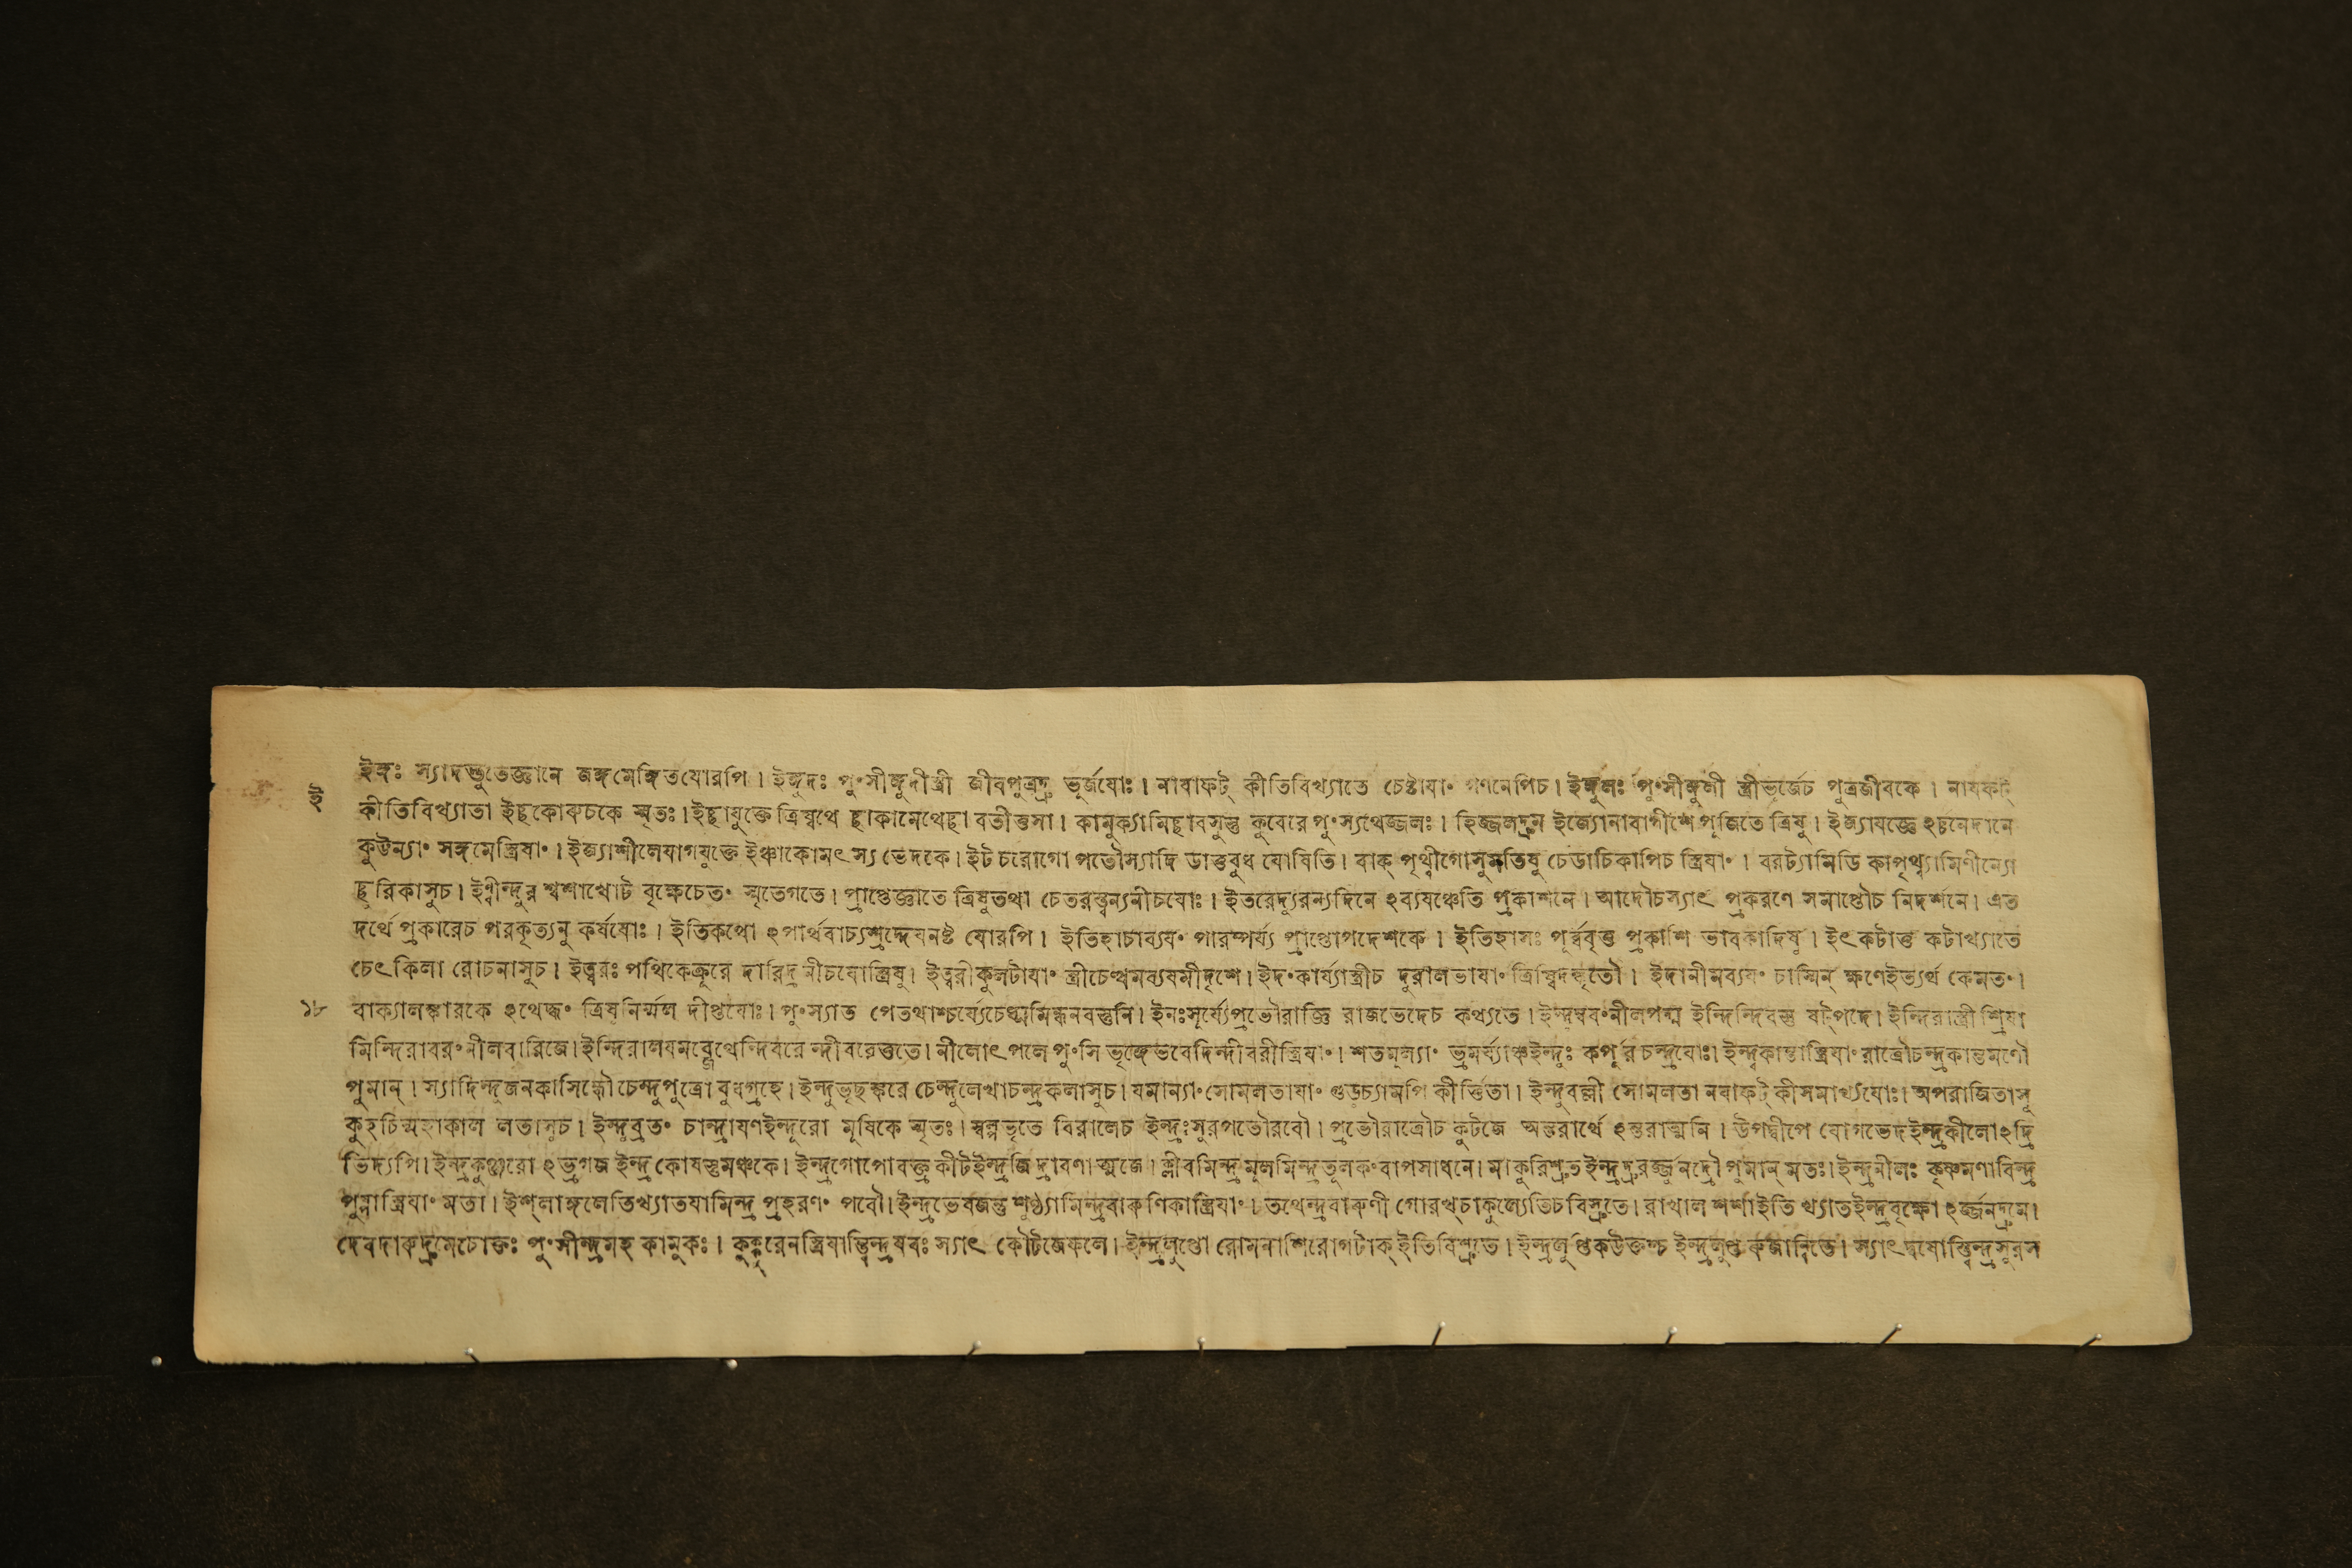 ইঙ্গঃ স্যাদদ্ভুতেজ্ঞানে জঙ্গমেঙ্গিতযোরপি। ইঙ্গুদঃ পুংসীঙ্গুদীস্ত্রী জীবপুত্রদ্রু ভূর্জযোঃ। নাবাফট্ কীতিবিখ্যাতে চেষ্টাযাং গণনেপিচ। ইঙ্গুলঃ পুংসীঙ্গুলী স্ত্রীভূর্জেচ পুত্রজীবকে। নাযফট্
ই
কীতিবিখ্যাতা ইচ্ছকোরুচকে স্মৃতঃ। ইচ্ছাযুক্তে ত্রিষ্বথে চ্ছাকামেথেচ্ছা বতীত্তসা। কামুক্যামিচ্ছাবসুস্তু কুবেরে পুংস্যথেজ্জলঃ। হিজ্জলদ্রুম ইজ্যোনাবাগীশে পূজিতে ত্রিষু। ইজ্যাযজ্ঞে ঽর্চ্চনেদানে
কুট্টন্যাং সঙ্গমেস্ত্রিযাং। ইজ্যাশীলেযাগযুক্তে ইঞ্চাকোমৎস্য ভেদকে। ইট চরোগো পতৌস্যাদি ডাত্তুবুধ যোষিতি। বাক্ পৃথ্বীগোসুমতিষু চেডাচিকাপিচ স্ত্রিযাং। বরট্যামিডি কাপৃথ্ব্যামিণীন্যো
চ্ছুরিকাসুচ। ইণ্বীন্দুর শ্বশাখোট বৃক্ষেচেতং স্মৃতেগতে। প্রাপ্তেজ্ঞাতে ত্রিষুতথা চেতরস্ত্বন্যনীচযোঃ। ইতরেদ্যুরন্যদিনে ঽব্যযঞ্চেতি প্রকাশনে। আদৌচস্যাৎ প্রকরণে সমাপ্তৌচ নিদর্শনে। এত
দর্থে প্রকারেচ পরকৃত্যনু কর্ষষোঃ। ইতিকথো ঽপার্থবাচ্যশ্রদ্দেযনষ্ট যোরপি। ইতিহাচাব্যযং পারম্পর্য্য প্রাপ্তোপদেশকে। ইতিহাসঃ পূর্ব্ববৃত্ত প্রকাশি ভারতাদিষু। ইৎকটাত্তু কটাখ্যাতে
চেৎ কিলা রোচনাসুচ। ইত্বরঃ পথিকেক্রূরে দারিদ্রনীচযোস্ত্রিষু। ইত্বরীকুলটাযাং স্ত্রীচেত্থমব্যযমীদৃশে। ইদংকার্য্যাস্ত্রীচ দুরালভাযাং ত্রিষ্বিদঙ্কৃতৌ। ইদানীমব্যযং চাস্মিন্ ক্ষণেইত্যর্থ কেমতং।
১৮
বাক্যালঙ্কারকে ঽথেদ্ধং ত্রিষুনির্ম্মল দীপ্তযোঃ। পুংস্যাত পেতথাশ্চর্য্যেচেধ্মমিন্ধনবস্তুনি। ইনঃসূর্য্যেপ্রভৌরাজ্ঞি রাজভেদেচ কথ্যতে। ইন্দম্বরংনীলপদ্ম ইন্দিন্দিরস্তু ষট্পদে। ইন্দিরাস্ত্রী শ্রিযা
মিন্দিরাবরংনীলবারিজে। ইন্দিরালযমব্জেথেন্দিবরে ন্দীবরেত্তুতে। নীলোৎপলে পুংসি ভৃঙ্গেভবেদিন্দীবরীস্ত্রিযাং। শতমূল্যাং ভ্রমর্য্যাঞ্চইন্দুঃ কর্পূর চন্দ্রযোঃ। ইন্দুকান্তাস্ত্রিযাং রাত্রৌচন্দ্রকান্তমণৌ
পুমান্। স্যাদিন্দুজনকাসিন্ধৌচেন্দুপুত্রো বুধগ্রহে। ইন্দুভৃচ্ছঙ্করে চেন্দুলেখাচন্দ্রকলাসুচ। যমান্যাং সোমলতাযাং গুডূচ্যামপি কীর্ত্তিতা। ইন্দুবল্লী সোমলতা নবাফট্ কীসমাখ্যযোঃ। অপরাজিতাসূ
কুহচিন্মহাকাল লতাসুচ। ইন্দুব্রতং চান্দ্রাযণইন্দুরো মূষিকে স্মৃতঃ। স্বল্পভৃতে বিরালেচ ইন্দ্রঃসুরপতৌরবৌ। প্রভৌরাত্রৌচ কুটজে অন্তরার্থে ঽন্তরাত্মনি। উপদ্বীপে যোগভেদইন্দ্রকীলোঽদ্রি
ভিদ্যপি। ইন্দ্রকুঞ্জরো ঽভ্রগজ ইন্দ্র কোষস্তুমঞ্চকে। ইন্দ্রগোপোরক্ত কীটইন্দ্রজি দ্রাবণাত্মজে। ক্লীবমিন্দ্র মূলমিন্দ্রতূলকংবাপসাধনে। মাকুরিশ্রুতইন্দ্রদ্রুরর্জ্জুনদ্রৌ পুমান্ মতঃ। ইন্দ্রনীলঃ কৃষ্ণমণাবিন্দ্র
পুষ্পাস্ত্রিযাং মতা। ইশ্লাঙ্গলেতিখ্যাতযামিন্দ্র প্রহরণং পবৌ। ইন্দ্রভেষজন্তু শুণ্ঠ্যামিন্দ্রবারুণিকাস্ত্রিযাং। তথেন্দ্রবারুণী গোরখ্চাকুল্যেতিচবিস্রুতে। রাখাল শর্শাইতি খ্যাতইন্দ্রবৃক্ষো ঽর্জ্জুনদ্রুমে।
দেবদারুদ্রুমেচোক্তঃ পুংসীন্দ্রমহ কামুকঃ। কুক্কুরেনস্ত্রিযাস্ত্বিন্দ্রযবঃ স্যাৎ কৌটজেফলে। ইন্দ্রলুপ্তো রোমনাশিরোগটাক্ইতিবিশ্রুতে। ইন্দ্রলুপ্তকউক্তশ্চ ইন্দ্রলুপ্ত রুজান্বিতে। স্যাৎ দ্বযোস্ত্বিন্দ্রসুরস